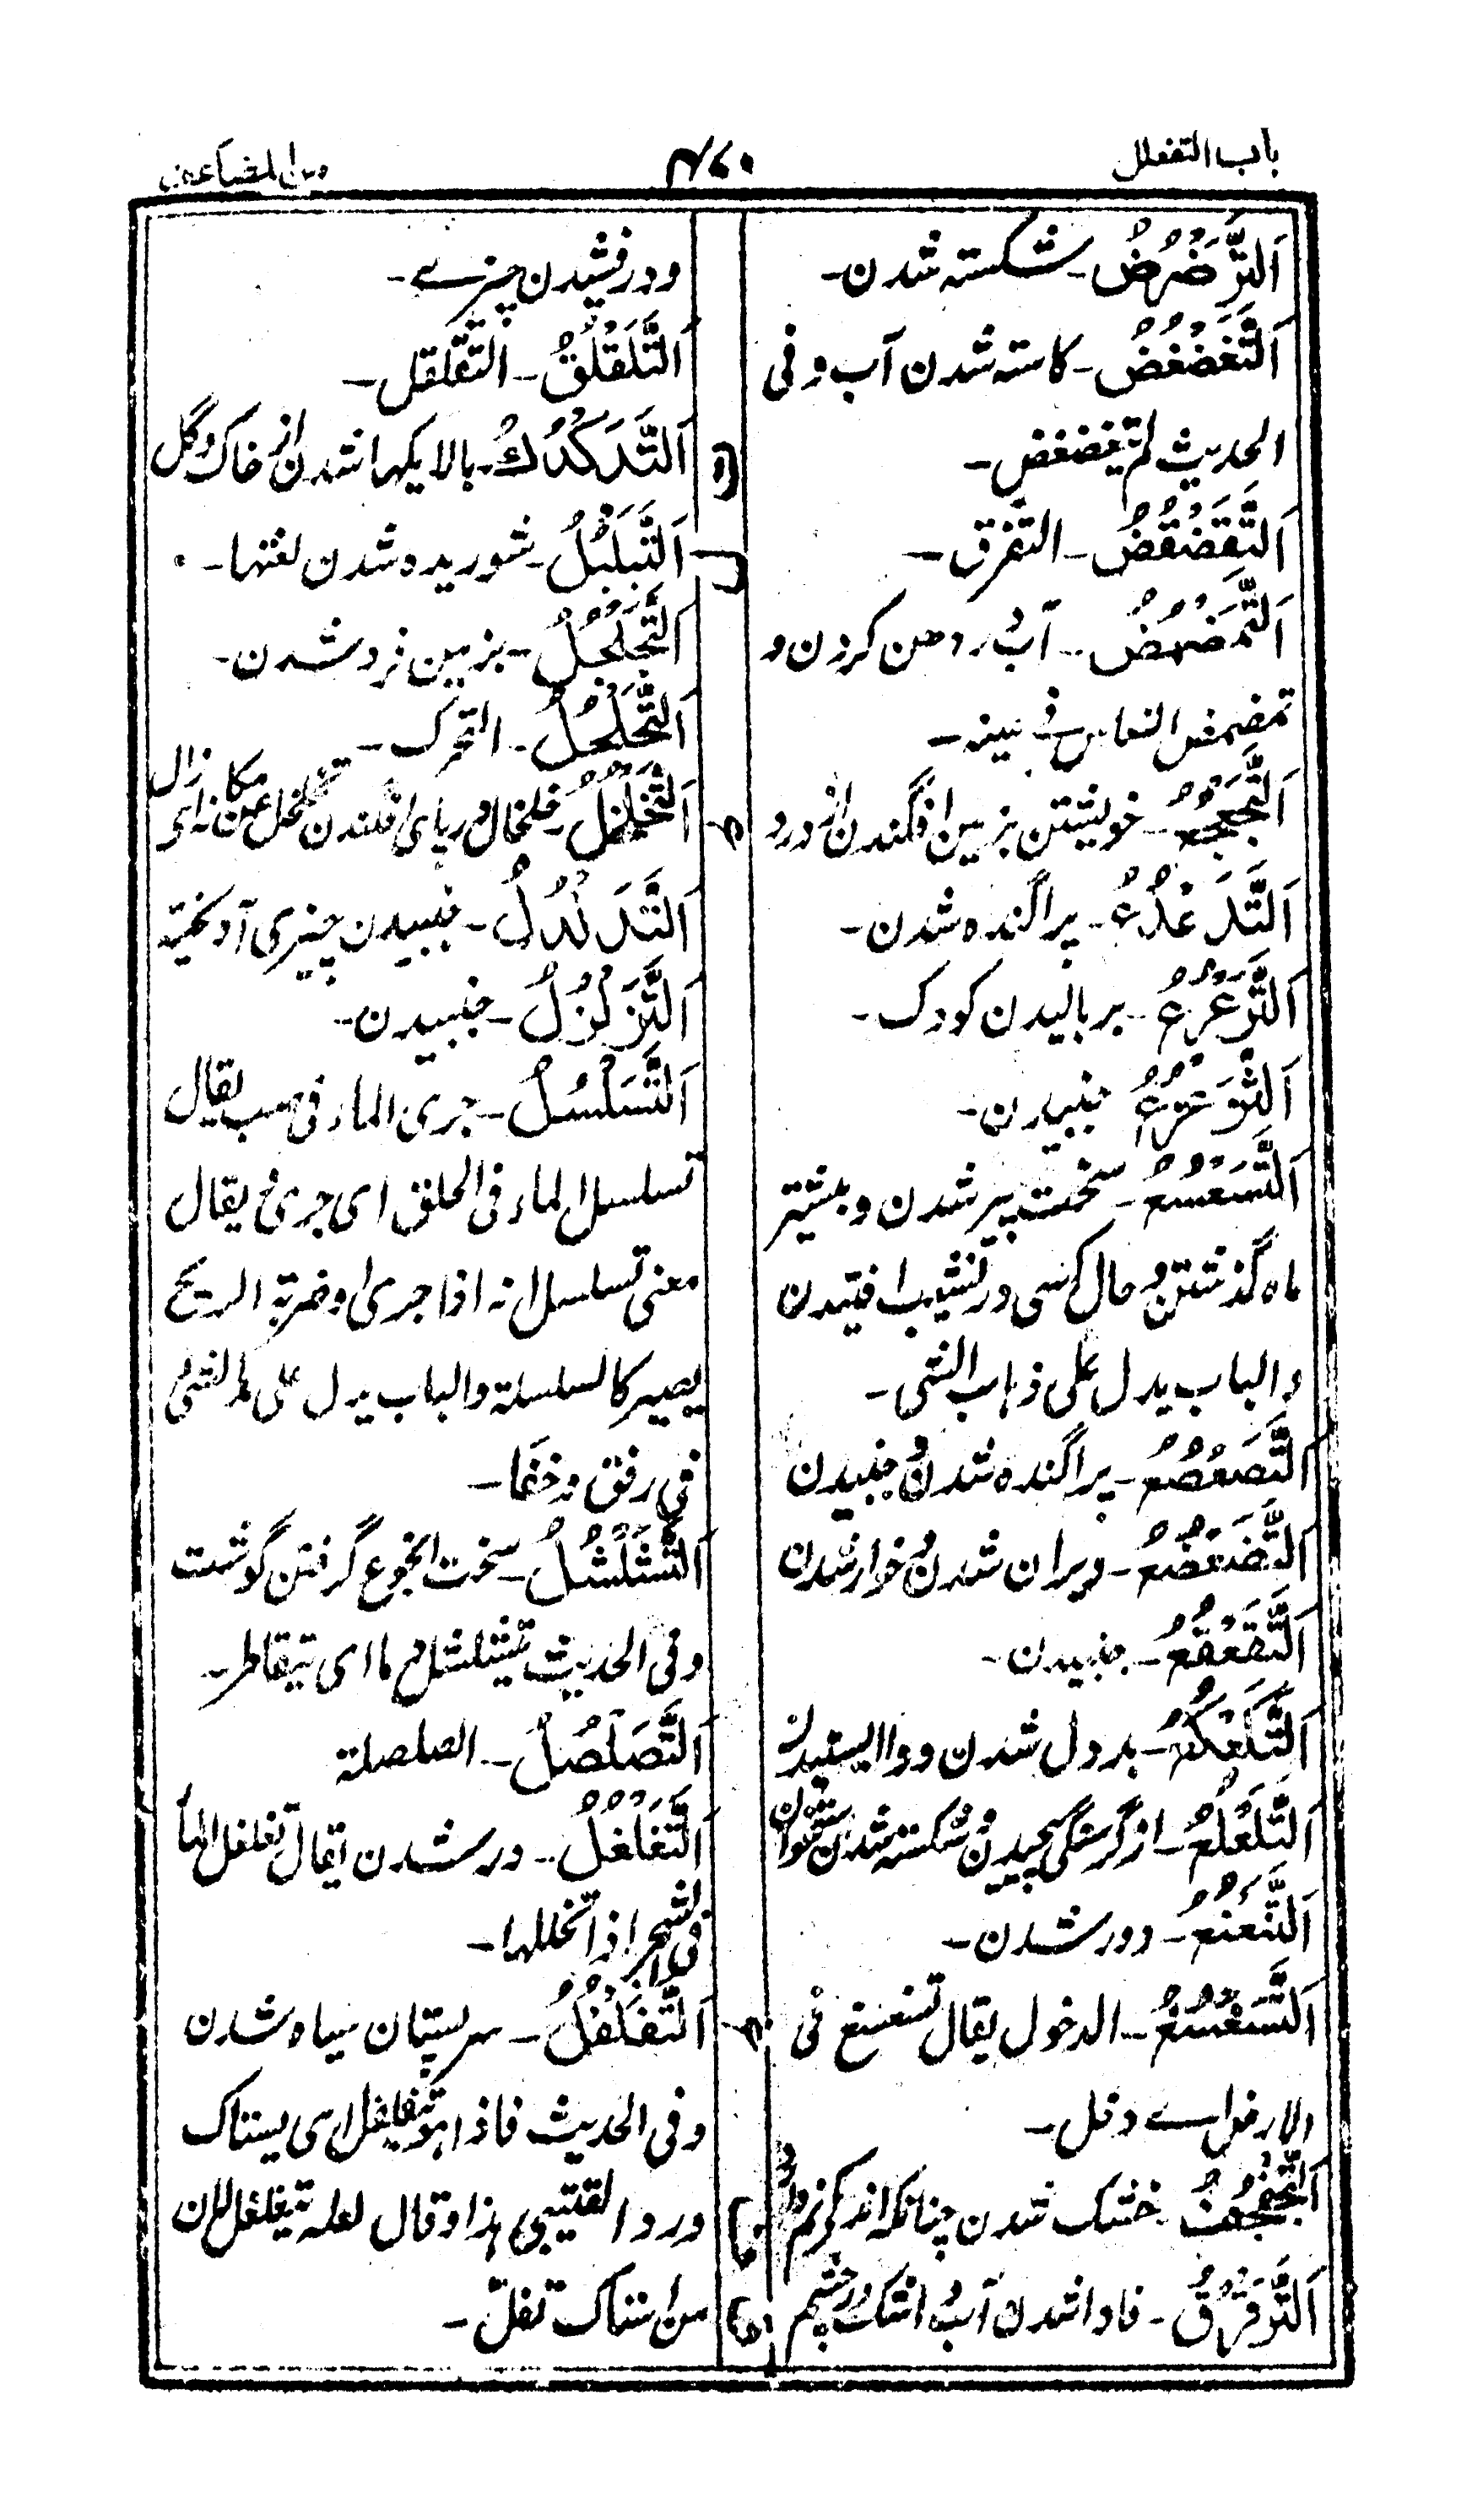 باب التفعلل
۴۷۰
من المضاعف
اَلتَّرَضْرُضُ ۔ شکسته شدن ۔
اَلتَّغَضْغُضُ ۔ کاسته شدن آب و فی
الحدیث لم یتغضغض ۔
اَلتَّقَضْقُضُ ۔ التفرق ۔
اَلتَّمَضْمُضُ ۔ آب در دهن کردن و
تمضمض النعاس فی عینه ۔
اَلتَّجَعْجُعُ ۔ خویشتن بزمین افگندن از درد
اَلتَّذَعْذُعُ ۔ پراگنده شدن ۔
اَلتَّرَعْرُعُ ۔ بربالیدن کودک ۔
اَلتَّزَعْزُعُ جنبیدن ۔
اَلتَّسَعْسُعُ ۔ سخت پیر شدن و بیشتر
ماه گذشتن و حال کسی در نشیب افتیدن
والباب یدل علی ذهاب الشی ۔
اَلتَّصَعْصُعُ ۔ پراگنده شدن و جنبیدن
اَلتَّضَعْضُعُ ۔ ویران شدن و خوار شدن
اَلتَّقَعْقُعُ ۔ جنبیدن ۔
اَلتَّكَعْكُعُ ۔ بددل شدن و وا ایستیدن
اَلتَّلَعْلُعُ ۔ از گرسنگی پیچیدن و شکسته شدن ستخوان
اَلتَّنَعْنُعُ ۔ دور شدن ۔
اَلتَّسَغْسُغُ ۔ الدخول یقال تسغسغ فی
الارض اے دخل ۔
اَلتَّجَفْجُفُ ۔ خشک شدن چنانکه اندکی نم دارد
اَلتَّرَقْرُقُ ۔ فاوا شدن آب و اشک در چشم
و درفشیدن چیزے ۔
اَلتَّلَقْلُقُ ۔ التقلقل ۔
اَلتَّدَكْدُكُ ۔ بالایکها شدن از خاک و گل
اَلتَّبَلْبُلُ ۔ شوریده شدن لغتها ۔
اَلتَّجَلْجُلُ ۔ بزمین فرد شدن ۔
اَلتَّحَلْحُلُ ۔ التحرک ۔
اَلتَّخَلْخُلُ ۔ خلخال در پای افکندن تخلخل عن مکانه ای زال
اَلتَّدَلْدُلُ ۔ جنبیدن چیزی آویخته
اَلتَّزَلْزُلُ ۔ جنبیدن ۔
اَلتَّسَلْسُلُ ۔ جری الماء فی صبب یقال
تسلسل الماء فی الحلق ای جری و یقال
معنی تسلسل انه اذا جری او ضربته الریح
یصیر کالسلسلة والباب یدل علی مد الشئ
فی رفق و خفا ۔
اَلتَّشَلْشُلُ ۔ سخت الجوع گرفتن گوشت
و فی الحدیث یتشلشل دما ای یتقاطر ۔
اَلتَّصَلْصُلُ ۔ الصلصلة
اَلتَّغَلْغُلُ ۔ در شدن یقال تغلغل الماء
فی الشجر اذا تخللها ۔
اَلتَّفَلْفُلُ ۔ سر پستان سیاه شدن
و فی الحدیث فاذا هو یتفلفل ای یستاک
و رد القتیبی هذا و قال لعله یتفلفل لان
من استاک تفل ۔